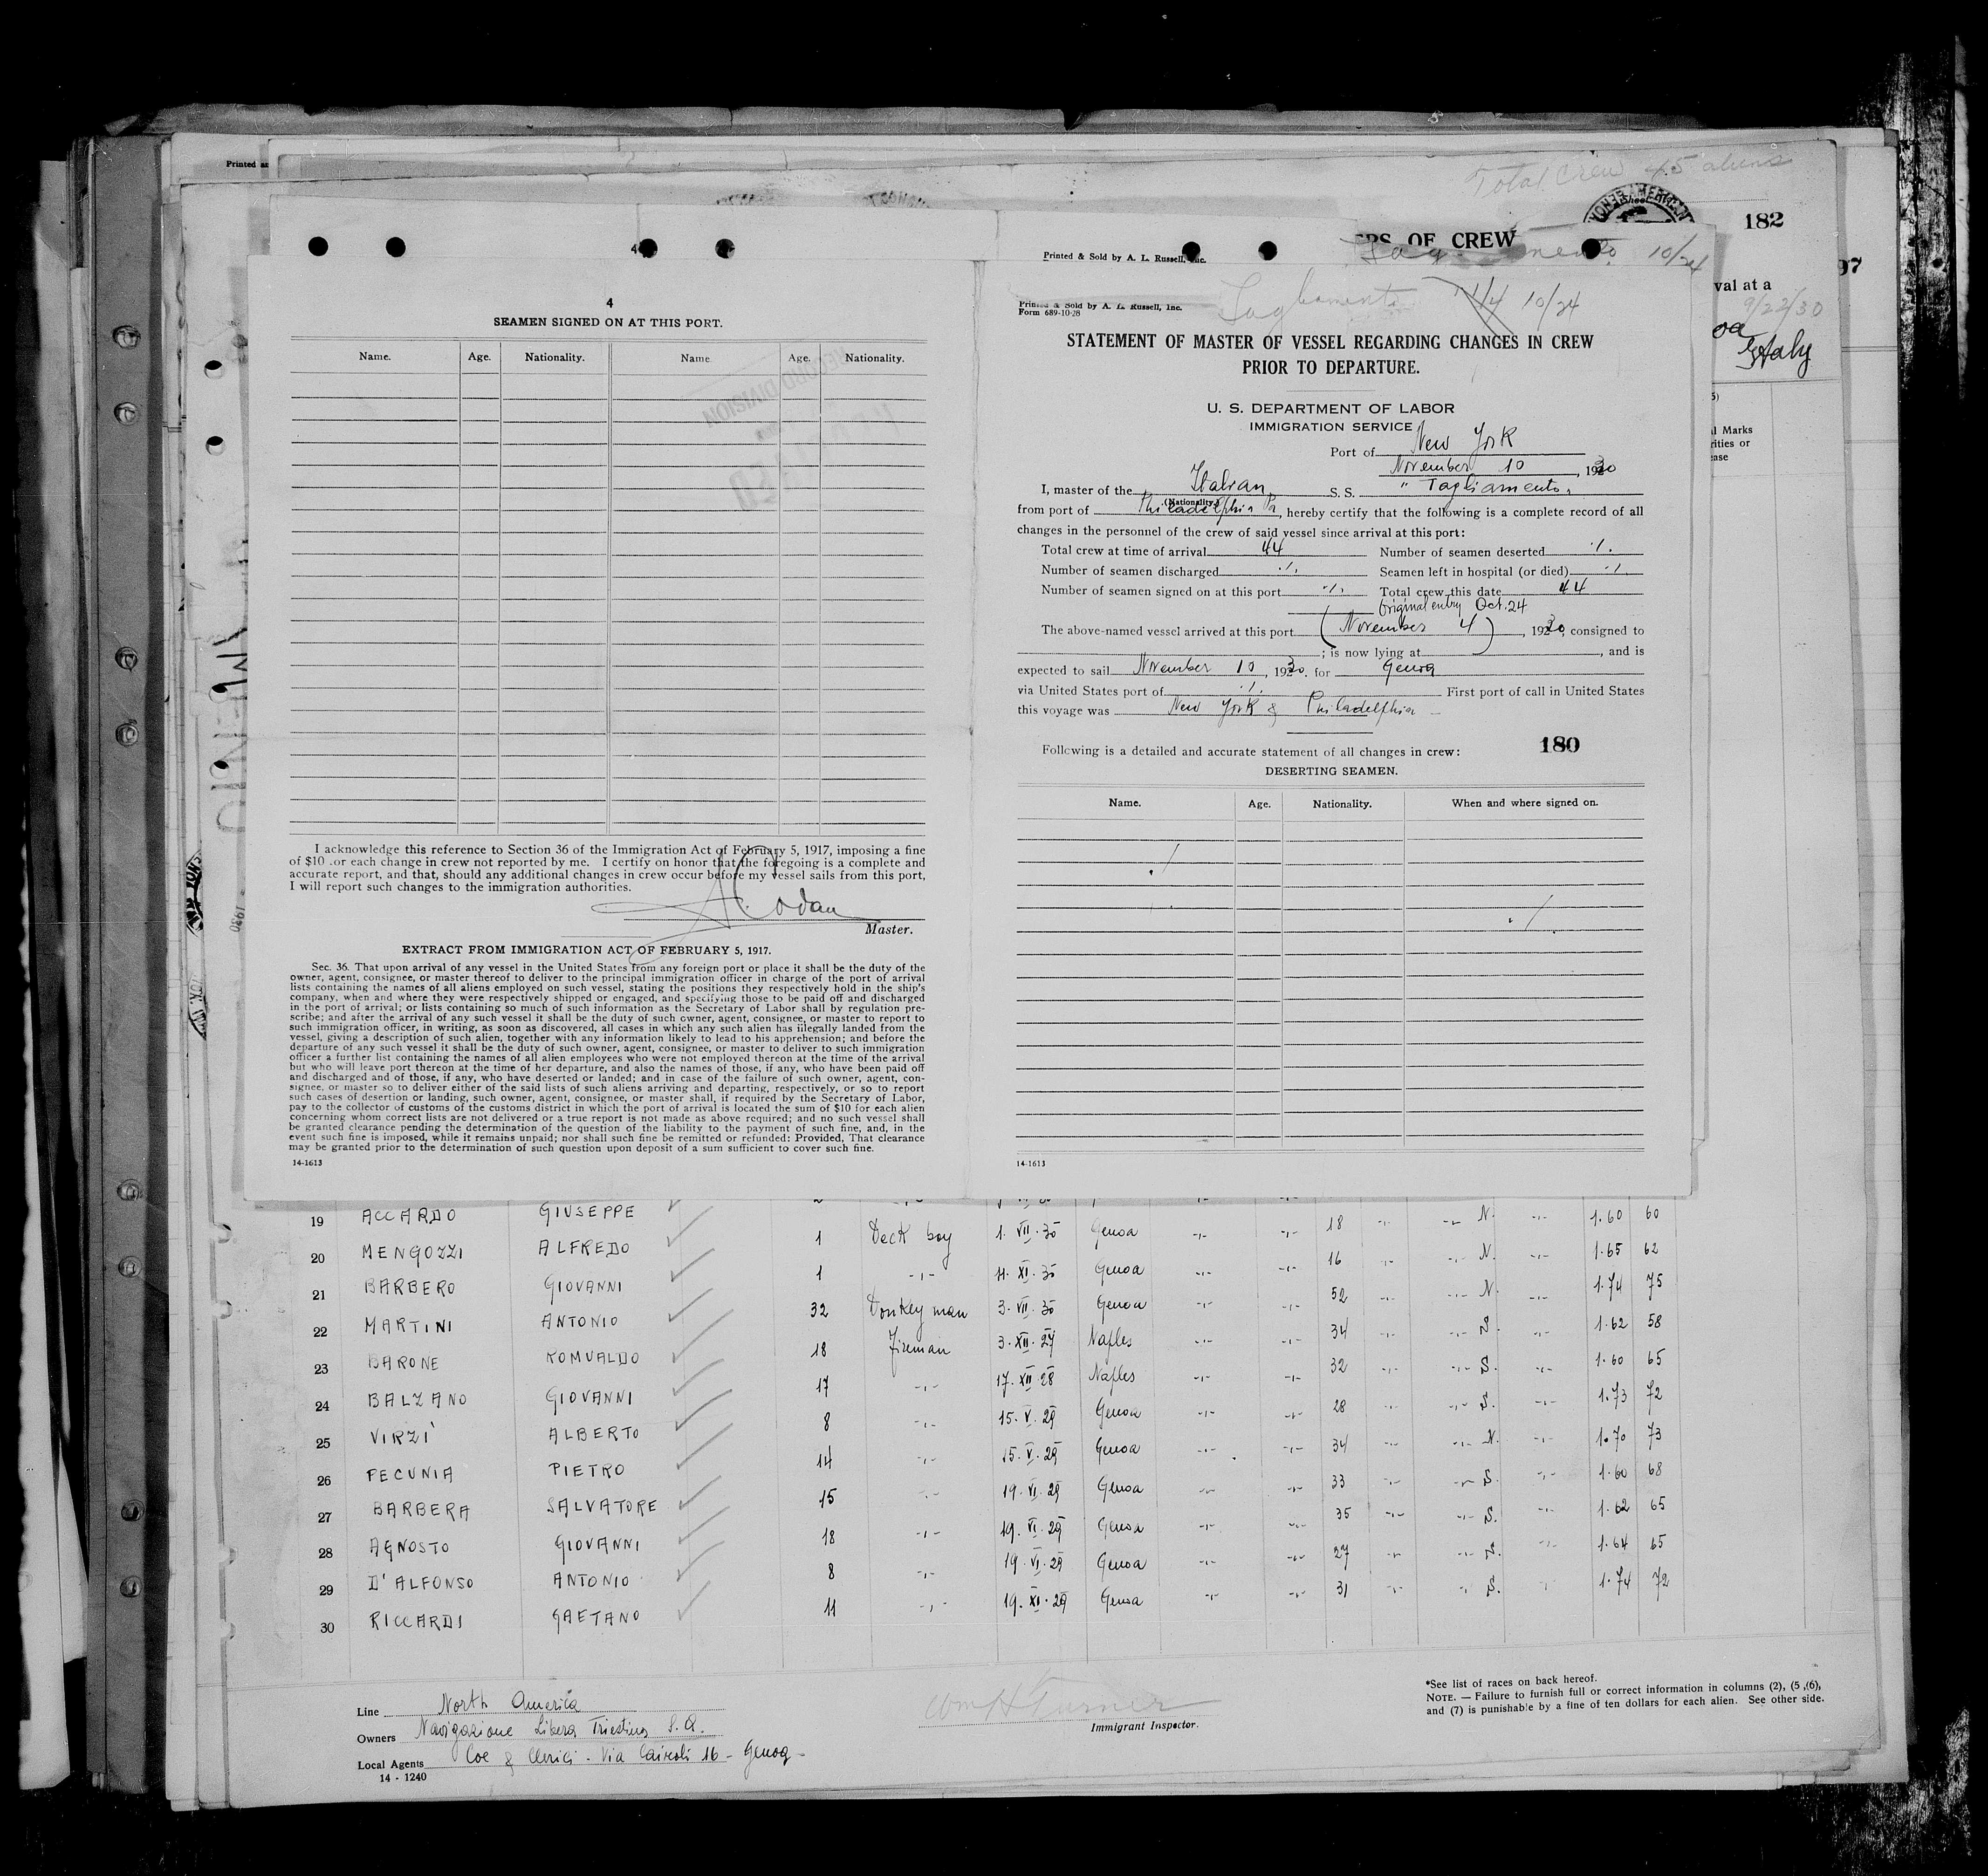 Printed
Total Crew 45 aliens
182
97
OF CREW
10/24
val at a
9/22/30
Italy
l Marks
rities or
ease
4
SEAMEN SIGNED ON AT THIS PORT.
Name. Age. Nationality. Name. Age. Nationality.
RECORD DIVISION
I acknowledge this reference to Section 36 of the Immigration Act of February 5, 1917, imposing a fine
of $10 for each change in crew not reported by me. I certify on honor that the foregoing is a complete and
accurate report, and that, should any additional changes in crew occur before my vessel sails from this port,
I will report such changes to the immigration authorities.
Master.
EXTRACT FROM IMMIGRATION ACT OF FEBRUARY 5, 1917.
Sec. 36. That upon arrival of any vessel in the United States from any foreign port or place it shall be the duty of the
owner, agent, consignee, or master thereof to deliver to the principal immigration officer in charge of the port of arrival
lists containing the names of all aliens employed on such vessel, stating the positions they respectively hold in the ship's
company, when and where they were respectively shipped or engaged, and specifying those to be paid off and discharged
in the port of arrival; or lists containing so much of such information as the Secretary of Labor shall by regulation pre-
scribe; and after the arrival of any such vessel it shall be the duty of such owner, agent, consignee, or master to report to
such immigration officer, in writing, as soon as discovered, all cases in which any such alien has illegally landed from the
vessel, giving a description of such alien, together with any information likely to lead to his apprehension; and before the
departure of any such vessel it shall be the duty of such owner, agent, consignee, or master to deliver to such immigration
officer a further list containing the names of all alien employees who were not employed thereon at the time of the arrival
but who will leave port thereon at the time of her departure, and also the names of those, if any, who have been paid off
and discharged and of those, if any, who have deserted or landed; and in case of the failure of such owner, agent, con-
signee, or master so to deliver either of the said lists of such aliens arriving and departing, respectively, or so to report
such cases of desertion or landing, such owner, agent, consignee, or master shall, if required by the Secretary of Labor,
pay to the collector of customs of the customs district in which the port of arrival is located the sum of $10 for each alien
concerning whom correct lists are not delivered or a true report is not made as above required; and no such vessel shall
be granted clearance pending the determination of the question of the liability to the payment of such fine, and, in the
event such fine is imposed, while it remains unpaid; nor shall such fine be remitted or refunded: Provided, That clearance
may be granted prior to the determination of such question upon deposit of a sum sufficient to cover such fine.
14-1613
Printed & Sold by A. L. Russell, Inc.
Printed & Sold by A. L. Russell, Inc.
Form 689-10-28
Tagliamento 11/4 10/24
STATEMENT OF MASTER OF VESSEL REGARDING CHANGES IN CREW
PRIOR TO DEPARTURE.
U. S. DEPARTMENT OF LABOR
IMMIGRATION SERVICE
Port of New York
November 10, 1930
I, master of the Italian S. S. "Tagliamento"
(Nationality.)
from port of Philadelphia Pa, hereby certify that the following is a complete record of all
changes in the personnel of the crew of said vessel since arrival at this port:
Total crew at time of arrival 44 Number of seamen deserted ./.
Number of seamen discharged ./. Seamen left in hospital (or died) ./.
Number of seamen signed on at this port ./. Total crew this date 44
Original entry Oct. 24
The above-named vessel arrived at this port (November 4), 1930, consigned to
; is now lying at , and is
expected to sail November 10, 1930, for Genoa
via United States port of ./. First port of call in United States
this voyage was New York & Philadelphia
Following is a detailed and accurate statement of all changes in crew: 180
DESERTING SEAMEN.
Name. Age. Nationality. When and where signed on.
./.
./.
14-1613
19 ACCARDO GIUSEPPE 1 Deck boy 1. VII. 30 Genoa -"- -"- 18 -"- -"- N. -"- 1.60 60
20 MENGOZZI ALFREDO 1 -"- 11. XI. 30 Genoa -"- -"- 16 -"- N. -"- 1.65 62
21 BARBERO GIOVANNI 32 Donkeyman 3. VII. 30 Genoa -"- -"- 52 -"- -"- N. 1.74 75
22 MARTINI ANTONIO 18 Fireman 3. XII. 27 Naples -"- -"- 34 -"- -"- S. -"- 1.62 58
23 BARONE ROMUALDO 17 -"- 17. XII. 28 Naples -"- -"- 32 -"- -"- S. -"- 1.60 65
24 BALZANO GIOVANNI 8 -"- 15. V. 29 Genoa -"- -"- 28 -"- -"- S. -"- 1.73 72
25 VIRZÌ ALBERTO 14 -"- 15. V. 29 Genoa -"- -"- 34 -"- -"- N. -"- 1.70 73
26 PECUNIA PIETRO 15 -"- 19. VI. 29 Genoa -"- -"- 33 -"- -"- S. -"- 1.60 68
27 BARBERA SALVATORE 18 -"- 19. VI. 29 Genoa -"- -"- 35 -"- -"- S. -"- 1.62 65
28 AGNOSTO GIOVANNI 8 -"- 19. VI. 29 Genoa -"- -"- 27 -"- -"- S. -"- 1.64 65
29 D'ALFONSO ANTONIO 11 -"- 19. XI. 29 Genoa -"- -"- 31 -"- -"- S. -"- 1.74 72
30 RICCARDI GAETANO
Line North America
Owners Navigazione Libera Triestina S.A.
Local Agents Coe & Clerici - Via Cairoli 16 - Genoa -
14 - 1240
Wm H Turner
Immigrant Inspector.
*See list of races on back hereof.
NOTE. — Failure to furnish full or correct information in columns (2), (5), (6),
and (7) is punishable by a fine of ten dollars for each alien. See other side.